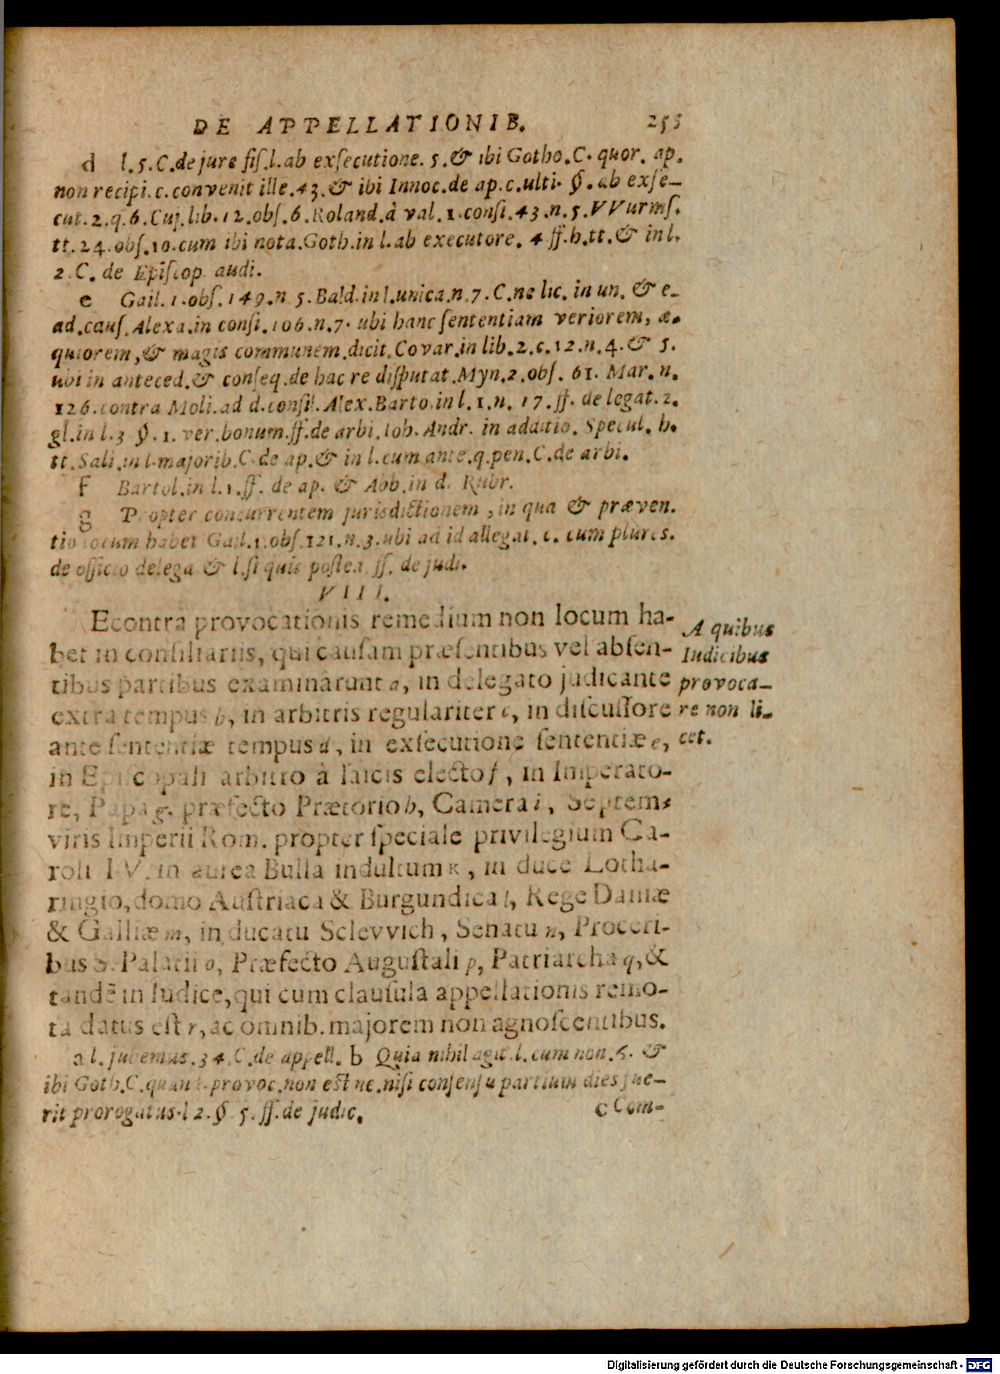 DE APPELLATIONIB. 255
d l.5.C.de jure fis.l.ab exsecutione.5.& ibi Gotho.C.quor. ap.
non recipi.c.convenit ille.43.& ibi Innoc.de ap.c.ulti. §.ab exse-
cut.2.q.6.Cuj.lib.12.obs.6.Roland.à val.1.consi.43.n.5.VVurms.
tt.24.obs.10.cum ibi nota.Goth.in l.ab executore. 4 ff.h.tt.& in l.
2.C. de Episcop. audi.
e Gail.1.obs.149.n 5.Bald.in l.unica.n.7.C.ne lic. in un. & e-
ad.caus.Alexa.in consi.106.n.7. ubi hanc sententiam veriorem, æ-
quiorem,& magis communem dicit.Covar.in lib.2.c.12.n.4.& 5.
ubi in anteced.& conseq.de hac re disputat.Myn.2.obs. 61. Mar. n.
126.contra Moli.ad d.consil.Alex.Barto.in l.1.n. 17.ff. de legat.2.
gl.in l.3 §.1.ver.bonum.ff.de arbi.Ioh.Andr. in additio. Specul. h.
tt.Sali.in l.majorib.C.de ap.& in l.cum ante.q.pen.C.de arbi.
f Bartol.in l.1.ff. de ap. & Abb.in d. Rubr.
g Propter concurrentem jurisdictionem, in qua & præven.
tio locum habet Gail.1.obs.121.n.3.ubi ad id allegat. c. cum plures.
de officio delega & l.si quis postea ff. de judi.
VIII.
Econtra provocationis remedium non locum ha-
bet in consiliariis, qui causam præsentibus vel absen-
tibus partibus examinarunt a, in delegato judicante
extra tempus b, in arbitris regulariter c, in discussore
ante sententiæ tempus d, in exsecutione sententiæ e,
in Episcopali arbitro à laicis electo f, in Imperato-
re, Papa g, præfecto Prætorio h, Camera i, Septem-
viris Imperii Rom. propter speciale privilegium Ca-
roli IV. in aurea Bulla indultum K, in duce Lotha-
ringio, domo Austriaca & Burgundica l, Rege Daniæ
& Galliæ m, in ducatu Sclevvich, Senatu n, Proceri-
bus S. Palatii o, Præfecto Augustali p, Patriarcha q, &
tandē in Iudice, qui cum clausula appellationis remo-
ta datus est r, ac omnib. majorem non agnoscentibus.
A quibus
Iudicibus
provoca-
re non li-
cet.
a l.jubemus.34.C.de appell. b Quia nihil agit.l.cum non.5. &
ibi Goth.C.quan.provoc.non est ne.nisi consensu partium dies fue-
rit prorogatus.l 2.§.5.ff.de judic.
c Com-
Digitalisierung gefördert durch die Deutsche Forschungsgemeinschaft - DFG